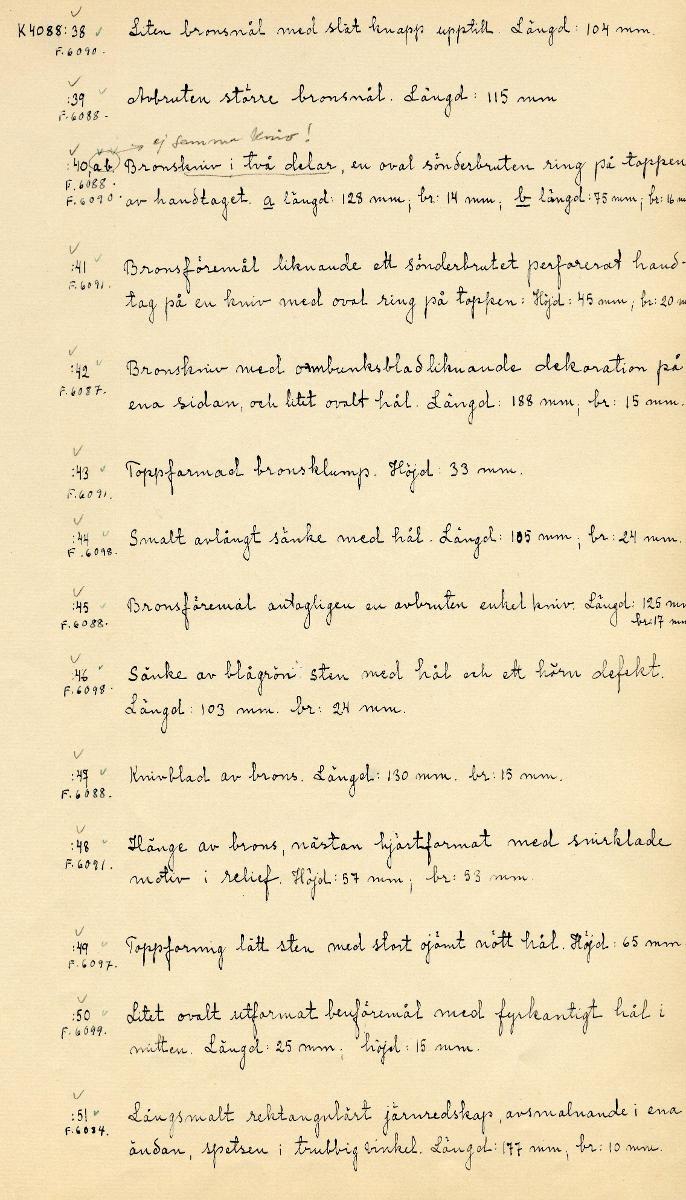 K4088:38 Liten bronsnål med slät knapp upptill. Längd: 104 mm.
F.6090.
:39 Avbruten större bronsnål. Längd: 115 mm
F.6088.
ej samma kniv!
:40, a.b. Bronskniv i två delar, en oval sönderbruten ring på toppen
F.6088.
F.6090. av handtaget. a längd: 128 mm; br: 14 mm; b längd: 75 mm; br: 16 m
:41 Bronsföremål liknande ett sönderbrutet perforerat hand-
F.6091.
tag på en kniv med oval ring på toppen: Höjd: 45 mm; br: 20 m
:42 Bronskniv med ormbunksbladliknande dekoration på
F.6087.
ena sidan, och litet ovalt hål. Längd: 188 mm; br: 15 mm.
:43 Toppfarmad bronsklump. Höjd: 33 mm.
F.6091.
:44 Smalt avlångt sänke med hål. Längd: 105 mm; br: 24 mm.
F.6098.
:45 Bronsföremål antagligen en avbruten enkel kniv. Längd: 125 mm
F.6088. br: 17 mm
:46 Sänke av blågrön sten med hål och ett hörn defekt.
F.6098.
Längd: 103 mm. br: 24 mm.
:47 Knivblad av brons. Längd: 130 mm. br: 15 mm.
F.6088.
:48 Hänge av brons, nästan hjärtformat med snirklade
F.6091.
motiv i relief. Höjd: 57 mm; br: 53 mm.
:49 Toppformig lätt sten med stort ojämt nött hål. Höjd: 65 mm
F.6097.
:50 Litet ovalt utformat benföremål med fyrkantigt hål i
F.6099.
mitten. Längd: 25 mm; höjd: 15 mm.
:51 Långsmalt rektangulärt järnredskap, avsmalnande i ena
F.6084.
ändan, spetsen i trubbig vinkel. Längd: 177 mm, br: 10 mm.